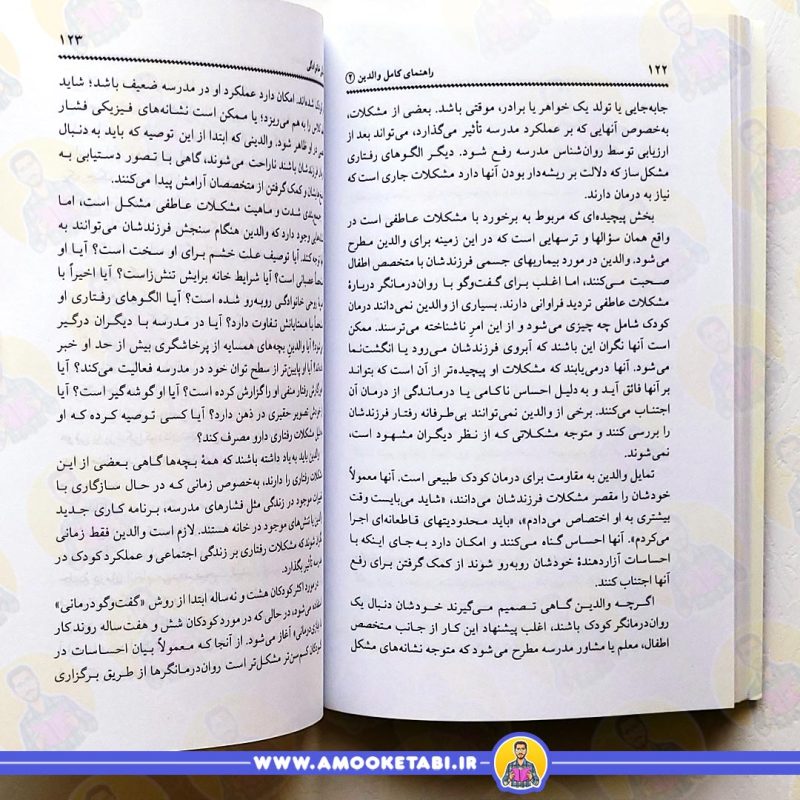 ۱۲۲
راهنمای کامل والدین (۲)
جابه‌جایی یا تولد یک خواهر یا برادر، موقتی باشد. بعضی از مشکلات،
به‌خصوص آنهایی که بر عملکرد مدرسه تأثیر می‌گذارد، می‌تواند بعد از
ارزیابی توسط روان‌شناس مدرسه رفع شود. دیگر الگوهای رفتاری
مشکل‌ساز که دلالت بر ریشه‌دار بودن آنها دارد مشکلات جاری است که
نیاز به درمان دارند.
بخش پیچیده‌ای که مربوط به برخورد با مشکلات عاطفی است در
واقع همان سؤالها و ترسهایی است که در این زمینه برای والدین مطرح
می‌شود. والدین در مورد بیماریهای جسمی فرزندشان با متخصص اطفال
صحبت می‌کنند، اما اغلب برای گفت‌وگو با روان‌درمانگر دربارهٔ
مشکلات عاطفی تردید فراوانی دارند. بسیاری از والدین نمی‌دانند درمان
کودک شامل چه چیزی می‌شود و از این امرِ ناشناخته می‌ترسند. ممکن
است آنها نگران این باشند که آبروی فرزندشان می‌رود یا انگشت‌نما
می‌شود. آنها درمی‌یابند که مشکلات او پیچیده‌تر از آن است که بتواند
بر آنها فائق آید و به‌دلیل احساس ناکامی یا درماندگی از درمان آن
اجتناب می‌کنند. برخی از والدین نمی‌توانند بی‌طرفانه رفتار فرزندشان
را بررسی کنند و متوجه مشکلاتی که از نظر دیگران مشهود است،
نمی‌شوند.
تمایل والدین به مقاومت برای درمان کودک طبیعی است. آنها معمولاً
خودشان را مقصر مشکلات فرزندشان می‌دانند، «شاید می‌بایست وقت
بیشتری به او اختصاص می‌دادم»، «باید محدودیتهای قاطعانه‌ای اجرا
می‌کردم». آنها احساس گناه می‌کنند و امکان دارد به‌جای اینکه با
احساسات آزاردهندهٔ خودشان روبه‌رو شوند از کمک گرفتن برای رفع
آنها اجتناب کنند.
اگرچه والدین گاهی تصمیم می‌گیرند خودشان دنبال یک
روان‌درمانگر کودک باشند، اغلب پیشنهاد این کار از جانب متخصص
اطفال، معلم یا مشاور مدرسه مطرح می‌شود که متوجه نشانه‌های مشکل
۱۲۳
شده‌اند. امکان دارد عملکرد او در مدرسه ضعیف باشد؛ شاید
را به هم می‌ریزد؛ یا ممکن است نشانه‌های فیزیکی فشار
در او ظاهر شود. والدینی که ابتدا از این توصیه که باید به دنبال
فرزندشان باشند ناراحت می‌شوند، گاهی با تصور دستیابی به
و کمک گرفتن از متخصصان آرامش پیدا می‌کنند.
شدت و ماهیت مشکلات عاطفی مشکل است، اما
وجود دارد که والدین هنگام سنجش فرزندشان می‌توانند به
توجه کنند. آیا توصیف علت خشم برای او سخت است؟ آیا او
عصبانی است؟ آیا شرایط خانه برایش تنش‌زاست؟ آیا اخیراً با
روحی خانوادگی روبه‌رو شده است؟ آیا الگوهای رفتاری او
با همتایانش تفاوت دارد؟ آیا در مدرسه با دیگران درگیر
آیا والدین بچه‌های همسایه از پرخاشگری بیش از حد او خبر
آیا او پایین‌تر از سطح توان خود در مدرسه فعالیت می‌کند؟ آیا
رفتار منفی او را گزارش کرده است؟ آیا او گوشه‌گیر است؟ آیا
تصویر حقیری در ذهن دارد؟ آیا کسی توصیه کرده که او
مشکلات رفتاری دارو مصرف کند؟
والدین باید به یاد داشته باشند که همهٔ بچه‌ها گاهی بعضی از این
رفتاری را دارند، به‌خصوص زمانی که در حال سازگاری با
موجود در زندگی مثل فشارهای مدرسه، برنامه کاری جدید
والدین یا تنش‌های موجود در خانه هستند. لازم است والدین فقط زمانی
شوند که مشکلات رفتاری بر زندگی اجتماعی و عملکرد کودک در
تأثیر بگذارد.
در مورد اکثر کودکان هشت و نه‌ساله ابتدا از روش «گفت‌وگو درمانی»
می‌شود، در حالی که در مورد کودکان شش و هفت‌ساله روند کار
آغاز می‌شود. از آنجا که معمولاً بیان احساسات در
کم‌سن‌تر مشکل‌تر است روان‌درمانگرها از طریق برگزاری
WWW.AMOOKETABI.IR